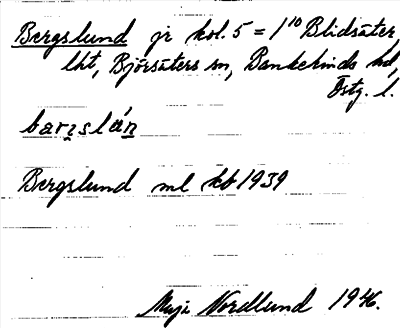 Bergslund jr kol. 5 = 1¹⁰ Blidsäter,
lht, Björsäters sn, Bankekinds hd,
Östg. l.
barʒslán
Bergslund ml kb 1939
Maja Nordlund 1946.